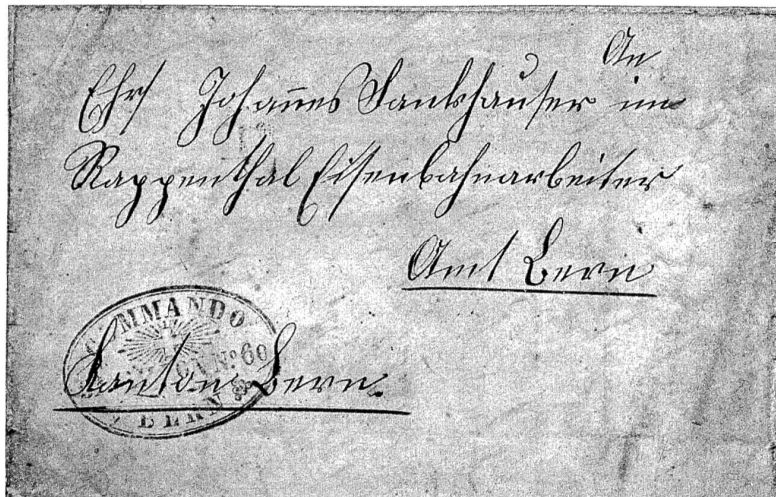 An
Ehrs Johannes Fankhauser im
Rappenthal Eisenbahnarbeiter
Amt Bern
COMMANDO
No 60
Kanton Bern.
BERN